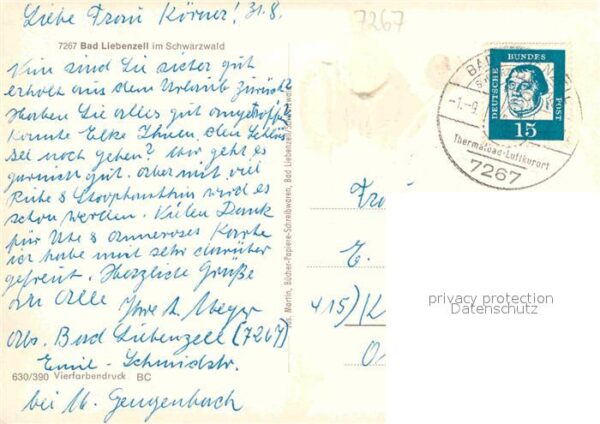 Liebe Frau Körner! 31.8.
7267
7267 Bad Liebenzell im Schwarzwald
Nun sind Sie sicher gut
erholt aus dem Urlaub zurück?
Haben Sie alles gut angetroffen
konnte Elke Ihnen den
noch geben? Mir geht es
gut. Aber mit viel
Ruhe & wird es
schon werden. Vielen Dank
für Ute & Annerose Karte
ich habe mich sehr darüber
gefreut. Herzliche Grüße
an Alle Ihre A. Meyer
Abs. Bad Liebenzell (7267)
Emil-Schmidstr.
bei M. Gengenbach
630/390 Vierfarbendruck BC
Martin, Bücher-Papiere-Schreibwaren, Bad Liebenzell/Schwarzwald
DEUTSCHE BUNDESPOST
15
BAD LIEBENZELL
Thermalbad-Luftkurort
7267
Frau
E.
415) K
privacy protection
Datenschutz